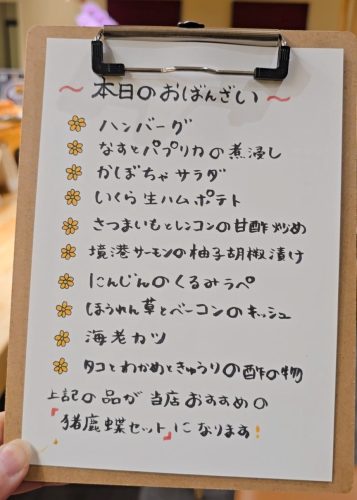 ～本日のおばんざい～
ハンバーグ
なすとパプリカの煮浸し
かぼちゃサラダ
いくら生ハムポテト
さつまいもとレンコンの甘酢炒め
境港サーモンの柚子胡椒漬け
にんじんのくるみラペ
ほうれん草とベーコンのキッシュ
海老カツ
タコとわかめときゅうりの酢の物
上記の品が当店おすすめの
「猪鹿蝶セット」になります!